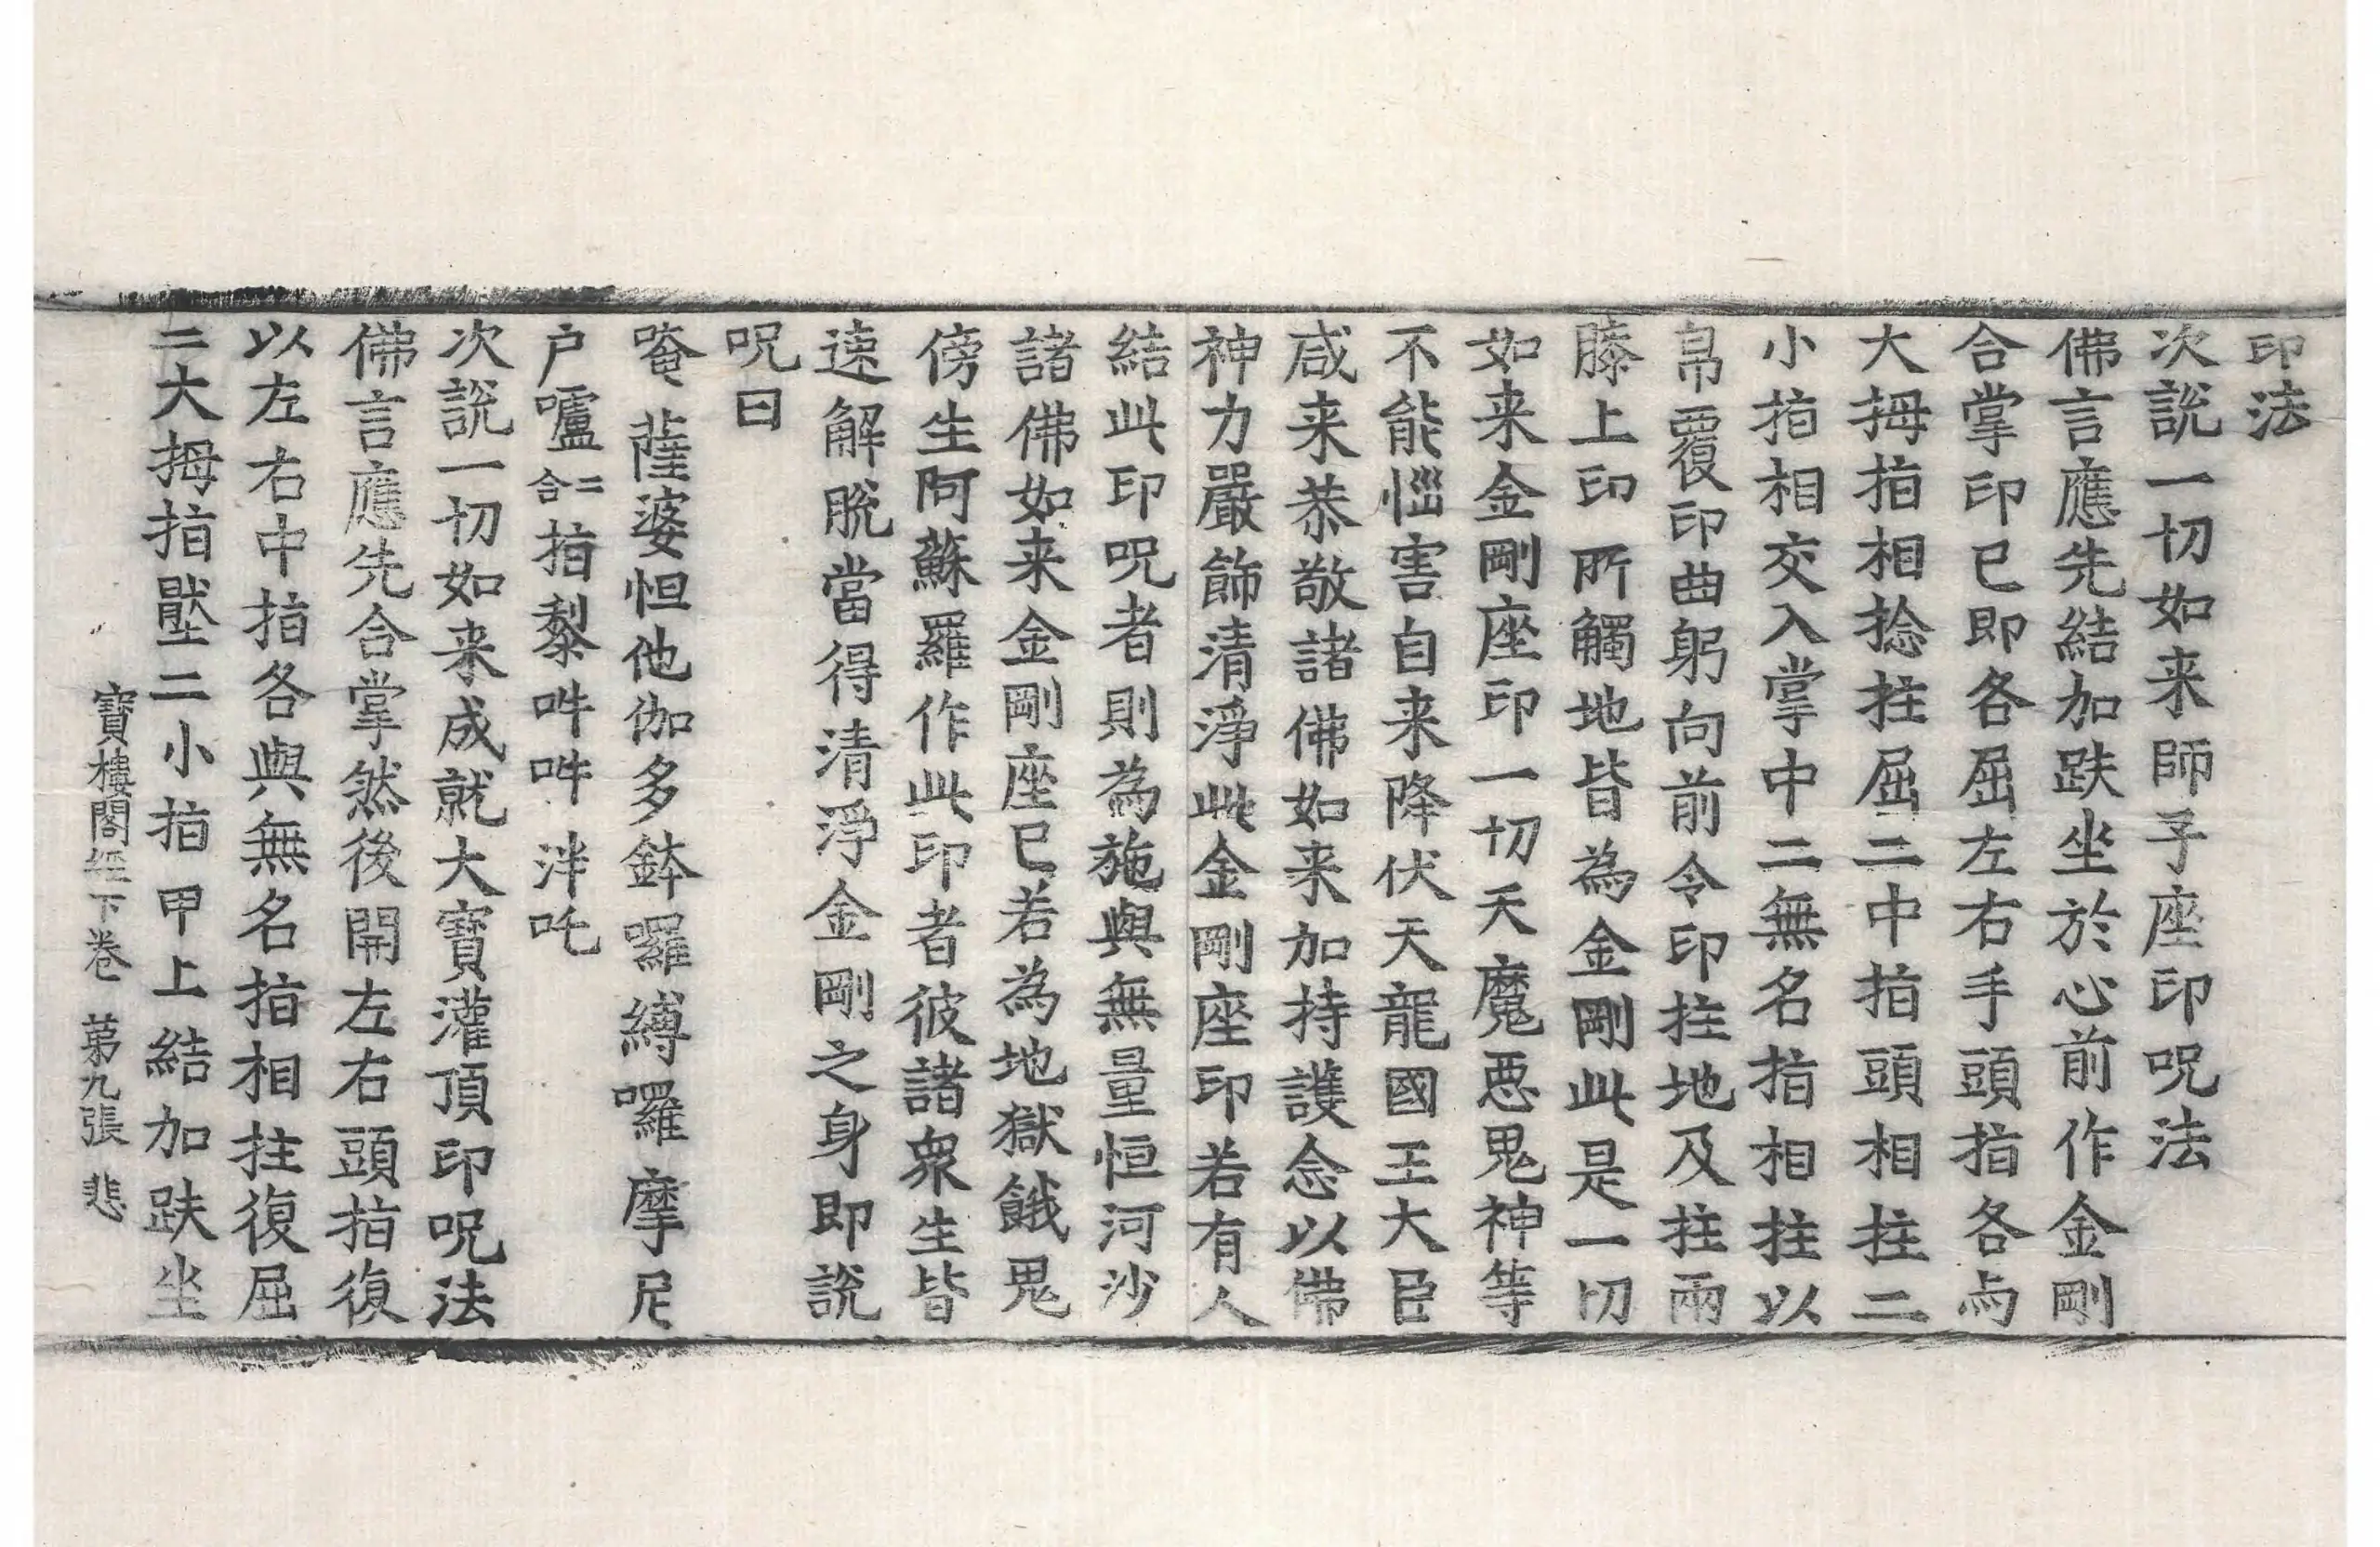 印法
次說一切如来師子座印呪法
佛言應先結加趺坐於心前作金剛
合掌印已即各屈左右手頭指各与
大拇指相捻拄屈二中指頭相拄二
小指相交入掌中二無名指相拄以
帛覆印曲躬向前令印拄地及拄兩
膝上印所觸地皆為金剛此是一切
如来金剛座印一切天魔惡鬼神等
不能惱害自来降伏天龍國王大臣
咸来恭敬諸佛如来加持護念以佛
神力嚴飾清淨此金剛座印若有人
結此印呪者則為施與無量恒河沙
諸佛如来金剛座已若為地獄餓鬼
傍生阿蘇羅作此印者彼諸衆生皆
速解脫當得清淨金剛之身即說
呪曰
唵薩婆怛他伽多鉢囉縛囉摩尼
户嚧二合指黎吽吽泮吒
次說一切如来成就大寶灌頂印呪法
佛言應先合掌然後開左右頭指復
以左右中指各與無名指相拄復屈
二大拇指壓二小指甲上結加趺坐
寶樓閣經下卷 第九張 悲